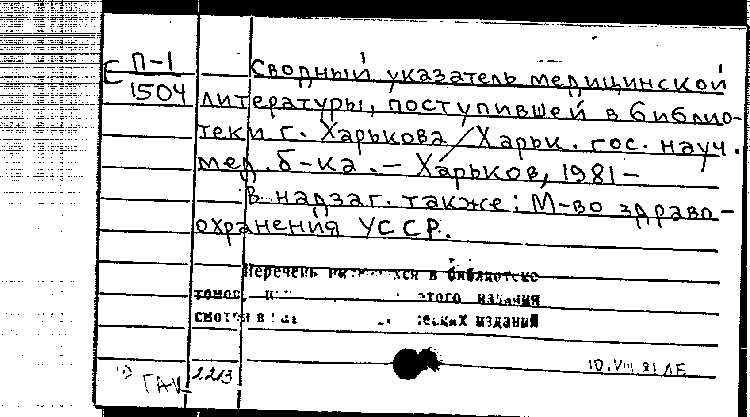 С П-1
1504
Сводный указатель медицинской
литературы, поступившей в библио-
теки г. Харькова / Харьк. гос. науч.
мед. б-ка. — Харьков, 1981 —
В надзаг. также: М-во здраво-
охранения УССР.
Перечень в библиотеке
томов, этого издания
смотри в изданий
ГАК 2213
10.VIII 81